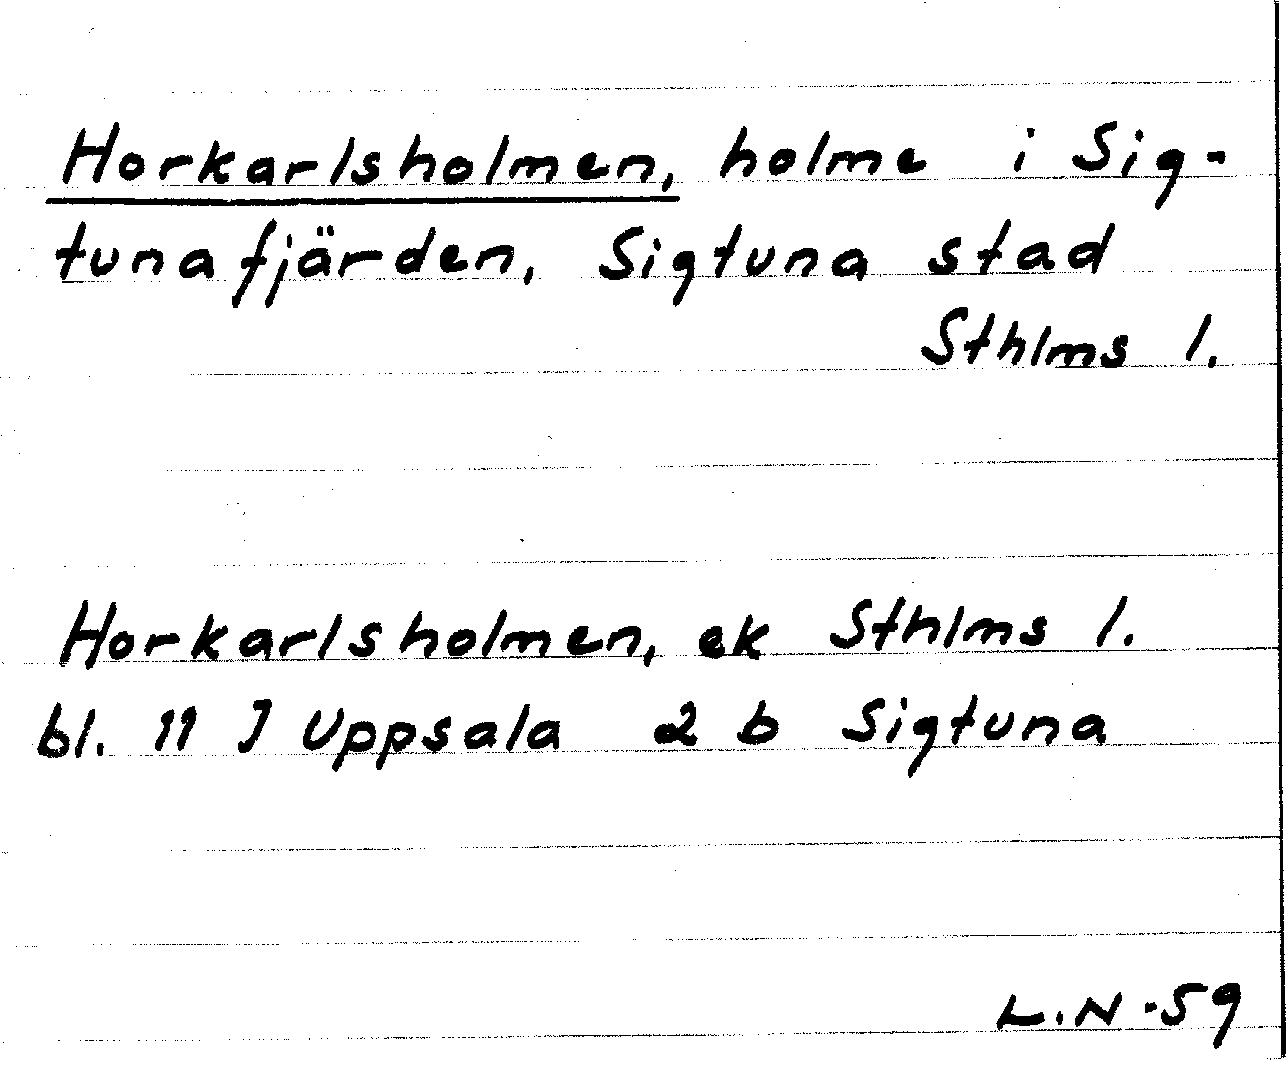 Horkarlsholmen, holme i Sig-
tunafjärden, Sigtuna stad
Sthlms l.
Horkarlsholmen, ek Sthlms l.
bl. 11 J Uppsala 2 b Sigtuna
L.N -59